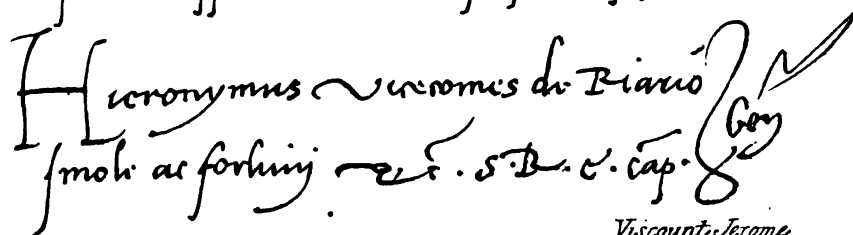 Hieronymus Vicecomes de Riario
Imole ac forlivij &c. S. R. E. cap. Gen
Viscount Jerome